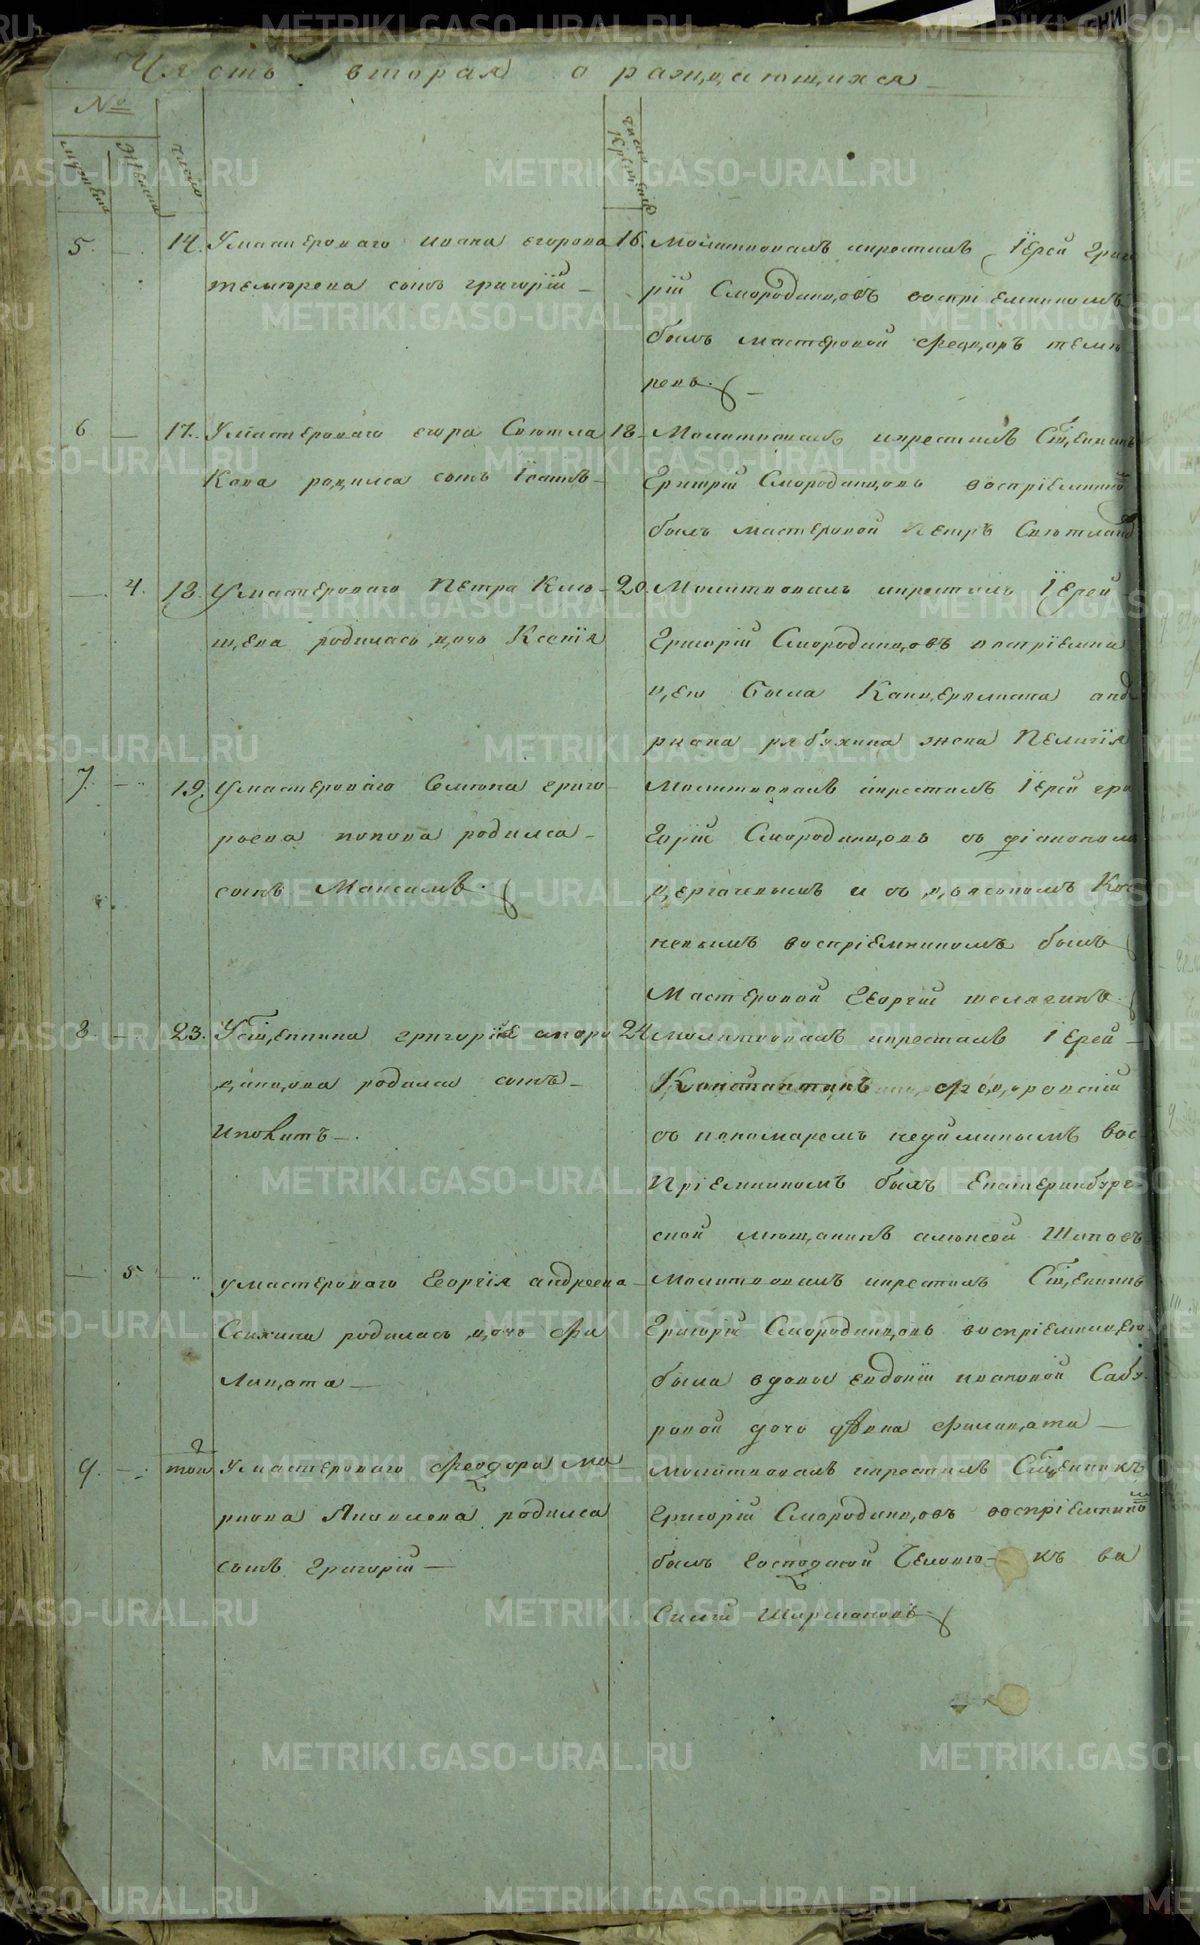 Часть вторая о раждающихся
№
мужеска
женска
число
число крещения
5. 14. У мастероваго ивана егорова
темирева сынъ григорій
16. Молитвовалъ икрестилъ Іерей Григо
рій Смородинцовъ воспріемникомъ
былъ мастеровой Феодоръ теми
ревъ.
6 17. У мастероваго егора Светла
кова родился сынъ Іоаннъ
18 Молитвовалъ икрестилъ Сщ҃енникъ
Григорій Смородинцовъ воспріемнико
былъ мастеровой Петръ Светлаков
4. 18. У мастероваго Петра Клю
щева родилась дочь Ксенія
20. Молитвовалъ икрестилъ Іерей
Григорій Смородинцовъ воспріемни
цею была Канцеляриста анд
риана рябухина жена Пелагія
7. 19. У мастероваго Семіона григо
рьева попова родился
сынъ Максимъ.
Молитвовалъ икрестилъ Іерей гри
горій Смородинцовъ съ діакономъ
дергачевымъ и съ дьячкомъ Кос
невымъ воспріемникомъ былъ
Мастеровой Георгій шелягинъ.
8 23. У Сщ҃енника григоріа сморо
динцова родился сынъ
Иполитъ.
24 молитвовалъ икрестилъ Іерей
Константинъ Феодоровскій
съ пономаремъ недоминымъ вос
пріемникомъ былъ Екатеринбург
ской мещанинъ алексей Шиповъ
5 у мастероваго Георгія андреева
Ссыкина родилась дочь Фи
лицата
Молитвовалъ икрестилъ Сщ҃енникъ
Григорій Смородинцовъ воспріемницею
была вдовы евдокіи ивановой Сабу
ровой дочь Анна Филицата
9. того У мастероваго Феодора ма
ркова Яковлева родился
сынъ Григорій
молитвовалъ икрестилъ Сщ҃енникъ
Григорій Смородинцовъ воспріемнико
былъ Господской Челове къ ва
силій Шармановъ
METRIKI.GASO-URAL.RU